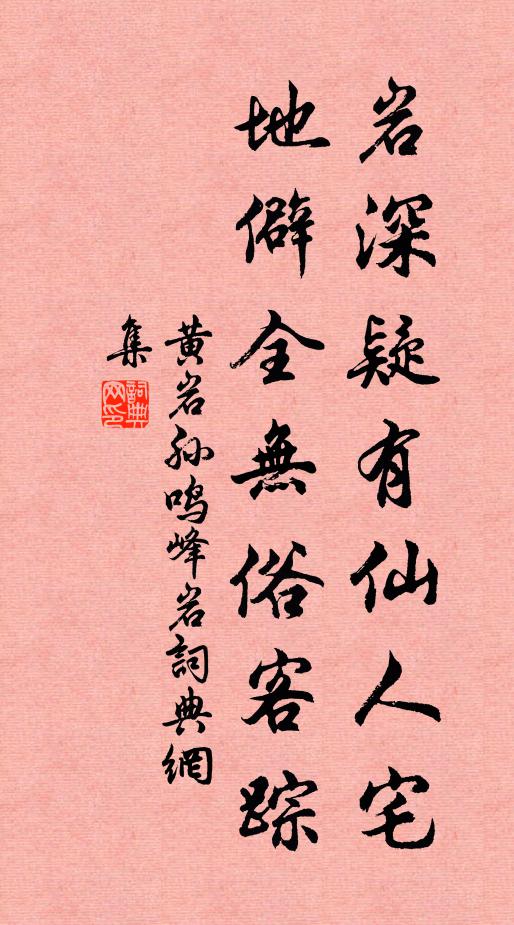 岩深疑有仙人宅
地僻全無俗客踪
黄岩孙鸣峰岩詞典網
集
詞典網印